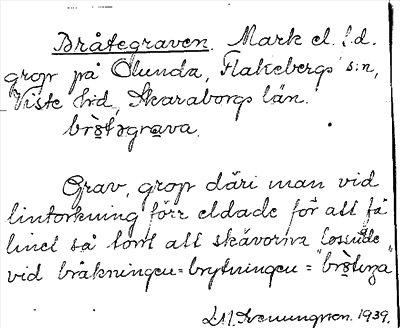 Bråtegraven. Mark el. f.d.
grop på Olunda, Flakebergs s:n,
Viste hd, Skaraborgs län.
bròtəgrava.
Grav, grop däri man vid
lintorkning förr eldade för att få
linet så torrt att skävorna lossnade
vid bråkningen = brytningen = "
L.M. Svenungsson. 1939.